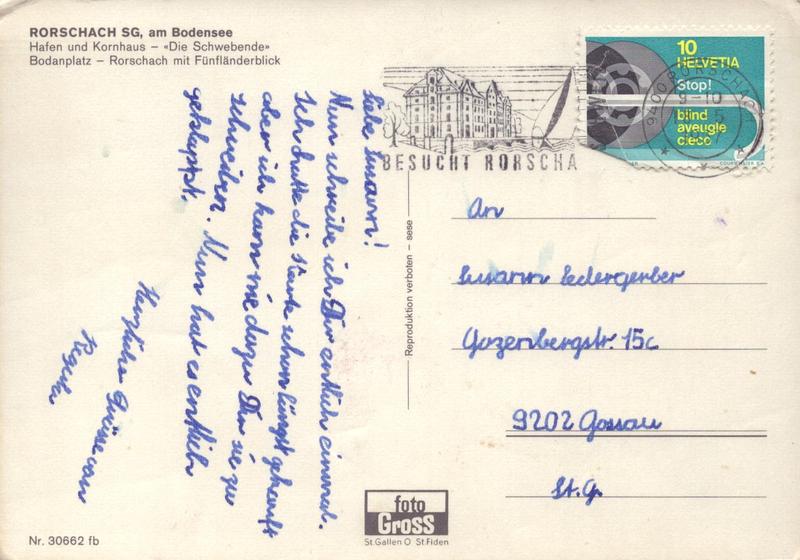 RORSCHACH SG, am Bodensee
Hafen und Kornhaus – «Die Schwebende»
Bodanplatz – Rorschach mit Fünfländerblick
10
HELVETIA
Stop!
blind
aveugle
cieco
COURVOISIER S.A.
9400 RORSCHACH
9-10
BESUCHT RORSCHA
Liebe Susann!
Nun schreibe ich Dir entlich einmal.
Ich hatte die Karte schon längst gekauft
aber ich kam nie dazu Dir sie zu
schreiben. Nun hat es entlich
geklappt.
Herzliche Grüsse von
Regula
Reproduktion verboten – sese
An
Susann Ledergerber
Gozenbergstr. 15c
9202 Gossau
St. G.
foto
Gross
St. Gallen O St. Fiden
Nr. 30662 fb